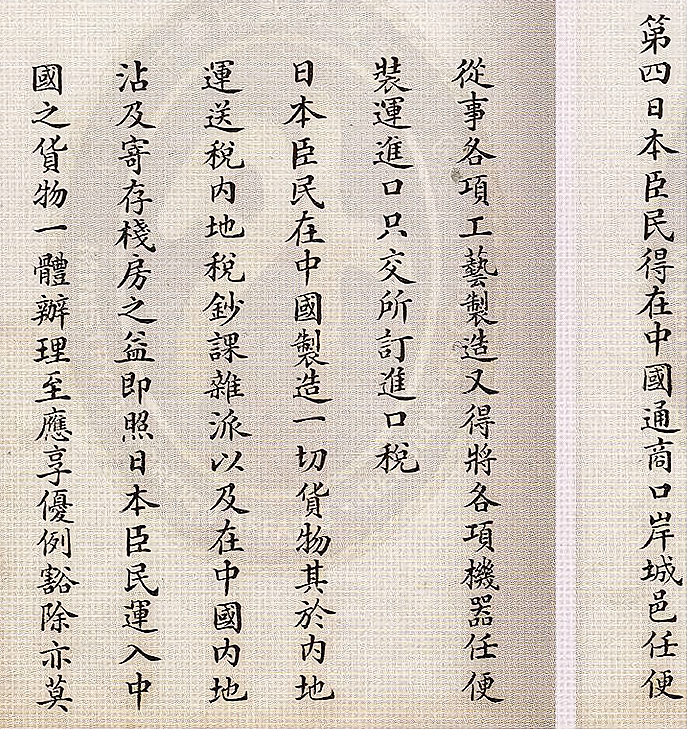 第四日本臣民得在中國通商口岸城邑任便
從事各項工藝製造又得將各項機器任便
裝運進口只交所訂進口稅
日本臣民在中國製造一切貨物其於內地
運送稅內地稅鈔課雜派以及在中國內地
沾及寄存棧房之益即照日本臣民運入中
國之貨物一體辦理至應享優例豁除亦莫